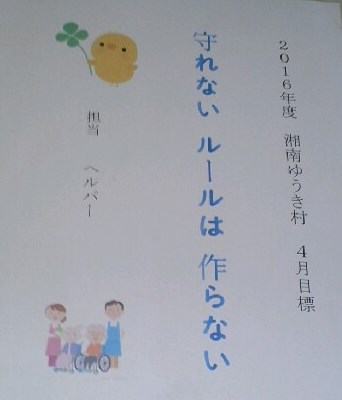 2016年度 湘南ゆうき村 4月目標
守れない ルールは 作らない
担当 ヘルパー